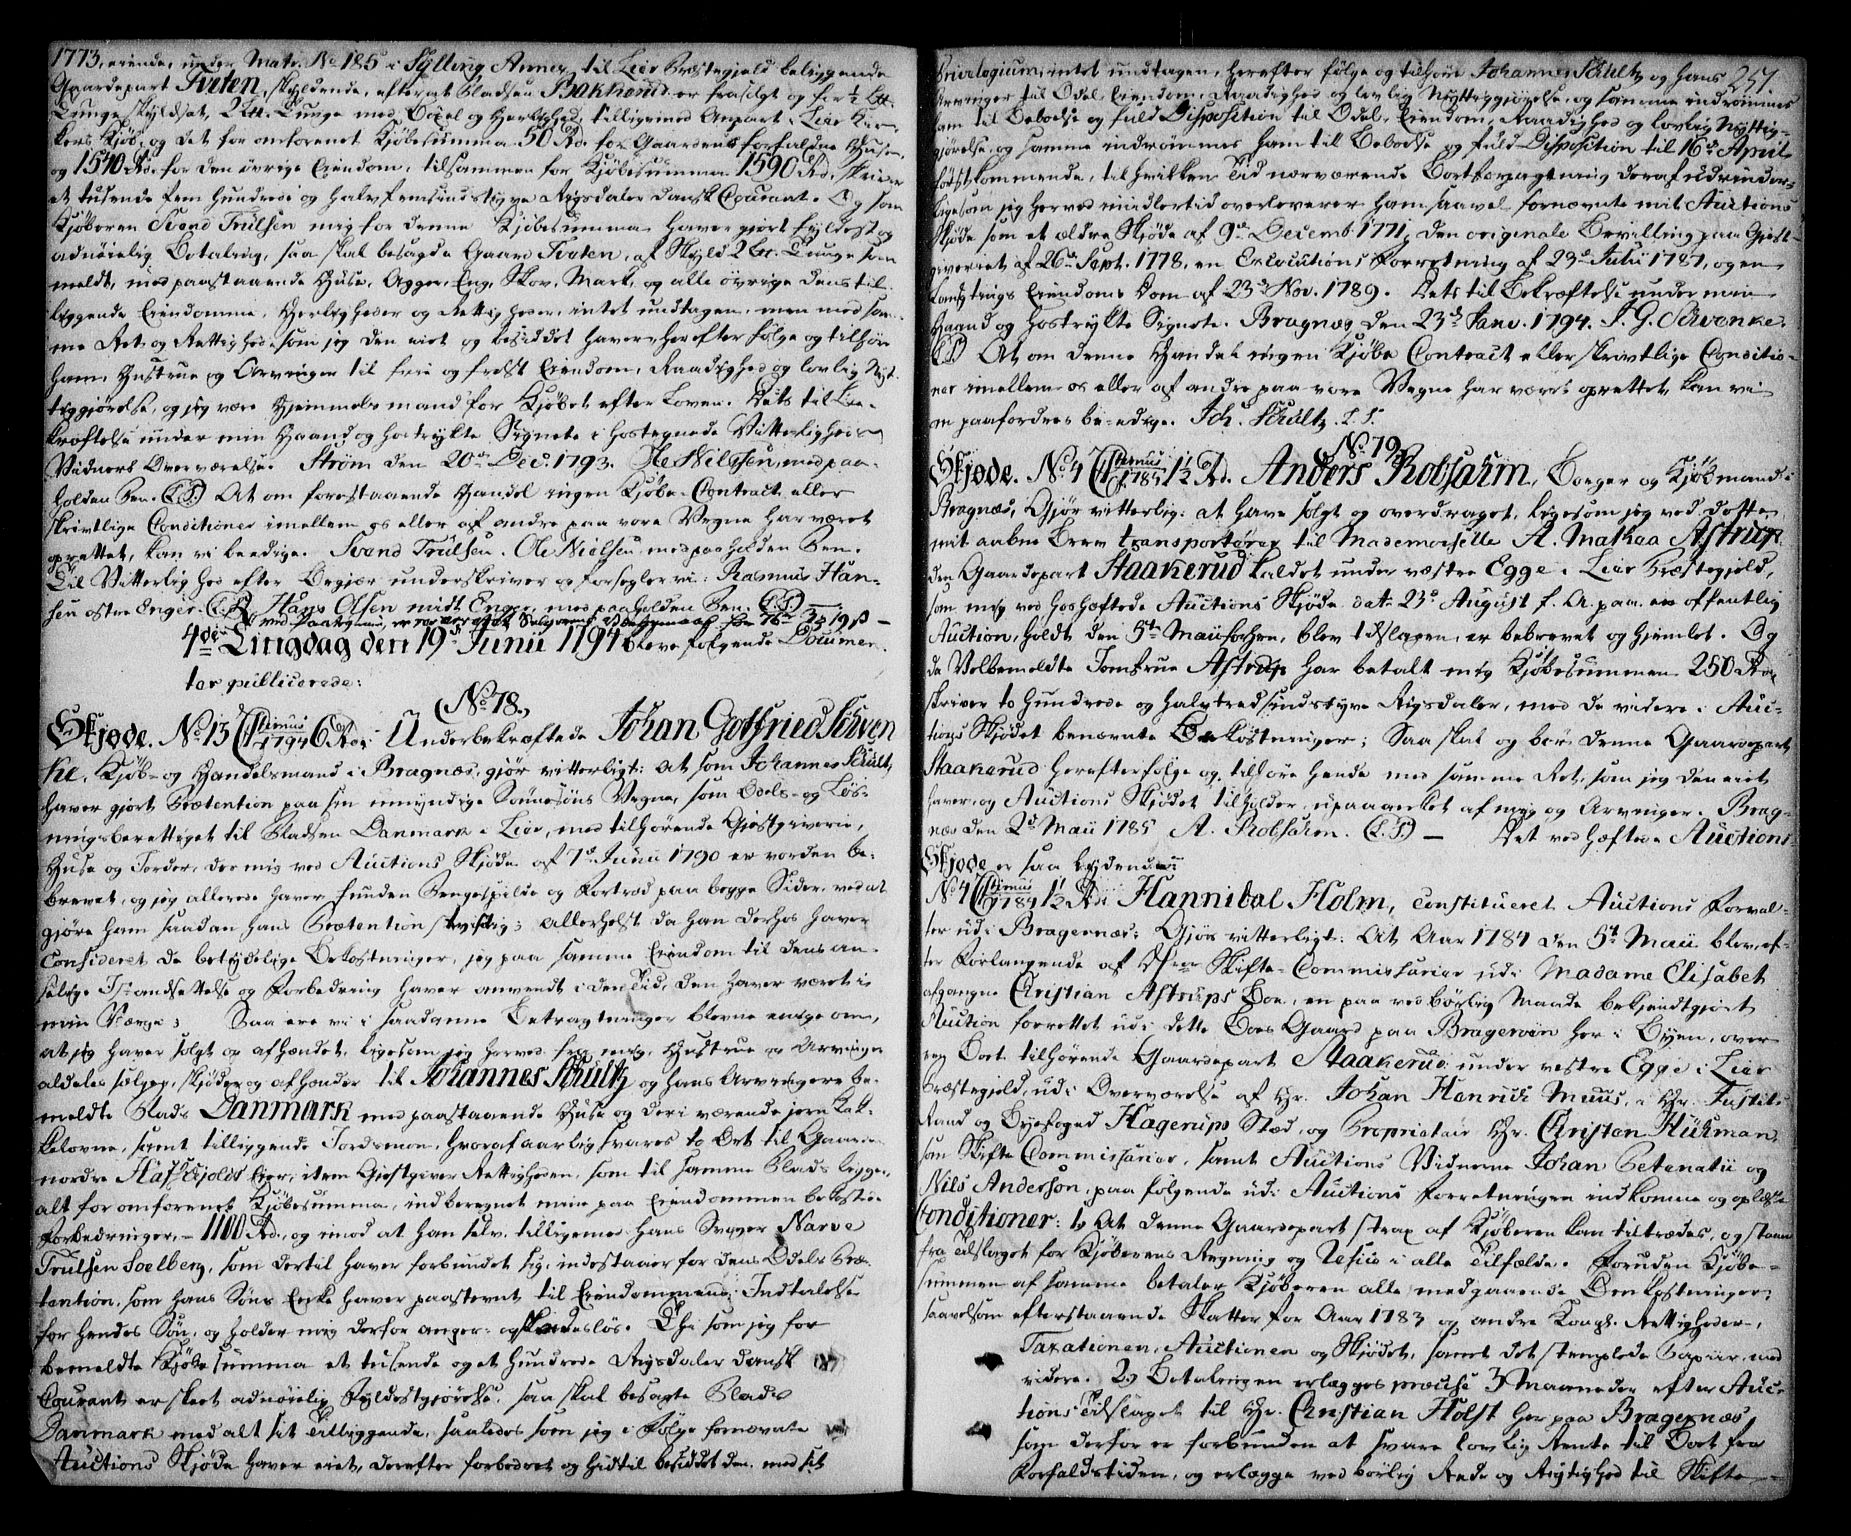 1773, eiende, under Matr. No 185 i Sylling Annex til Lier Præstegjeld beliggende
Gaardepart Tveten, skyldende, efterat Pladsen Bakkerud er frasolgt og for ½ L℔.
Tunge skyldsat, 2 L℔. Tunge med Bøxel og Herlighed, tilligemed Anpart i Lier Kir-
kes Kjøb, og det for omforenet Kjøbesumma 50 Rd. for Gaardens forfaldne Huse,
og 1540 Rd. for den øvrige Eiendom, tilsammen for Kjøbesumma 1590 Rd. skriver
et tusende fem Hundrede og halvfemsindstyve Rigsdaler dansk Courant. Og som
Kjøberen Svend Trulsen mig for denne Kjøbesumma haver gjort fyldest og
adnøielig Betaling, saa skal besagde Gaard Tveten, af Skyld 2 L℔. Tunge som
meldt, med paastaaende Huse, Agger, Eng, Skov, Mark, og alle øvrige dens til-
liggende Eiendomme, Herligheder og Rettigheder, intet undtagen, men med sam-
me Ret og Rettighed, som jeg den eiet og besiddet haver, herefter følge og tilhøre
ham, Hustrue og Arvinger til frie og frelst Eiendom, Raadighed og lovlig Nyt-
tiggjørelse, og jeg være Hjemmelsmand for Kjøbet efter Loven. Dets til Be-
kræftelse under min Haand og hostrykte Signete i hostegnede Vitterligheds
Vidners Overværelse. Strøm den 20de Dec. 1793. Ole Nielssen, med paa-
holden Pen. (L.S.) At om forestaaende Handel ingen Kjøbe-Contract eller
skrivtlige Conditioner imellem os eller af andre paa vore Vegne har været
oprettet, kan vi beedige. Svend Trulsen. Ole Nielsen med paaholden Pen.
Til Vitterlighed efter Begjær underskriver og forsegler vi: Rasmus Han-
sen østre Enger. (L.S.) Hans Olsen midt Enger, med paaholden Pen. (L.S.)
4de Tingdag den 19de Junii 1794 bleve følgende Documen-
ter publicerede:
(No 78.)
Skjøde. No 13 Cl. 1794 6 Rd. Underbekræftede Johan Gotfried Schven
ke, Kjøb- og Handelsmand i Bragnæs, gjør vitterligt: at som Johannes Schultz
haver gjort Prætention paa sin umyndige Sønnesøns Vegne, som Odels- og Løs-
ningsberettiget til Pladsen Danmark i Lier, med tilhørende Gjestgiverie,
Huse og Jorder, der mig ved Auctions Skjøde af 7de Junii 1790 er vorden be-
brevet, og jeg allerede haver funden Pengespilde og Fortræd paa begge Sider, ved at
gjøre ham saadan hans Prætention stridig; allerhelst da han derhos haver
consideret de betydelige Bekostninger, jeg paa samme Eiendom til dens an-
selige Istandsættelse og Forbedring haver anvendt i den Tid, den haver været i
min Værge; Saa ere vi i saadanne Betragtninger blevne enige om,
at jeg haver solgt og afhændet, ligesom jeg herved fra mig, Hustrue og Arvinger
aldeles sælger, skjøder og afhænder til Johannes Schultz og hans Arvinger be-
meldte Plads Danmark med paastaaende Huse og deri værende jern Kak-
kelovne, samt tilliggende Jordemon, hvoraf aarlig svares to Ort til Gaarden
nordre Hasskjolds Eier, item Gjestgiver Rettigheden, som til samme Plads ligger,
alt for omforenet Kjøbesumma, indberegnet mine paa Eiendommen bekostede
Forbedringer, – 1100 Rd., og imod at han selv, tilligemed hans Svoger Narve
Trulsen Soelberg, som dertil haver forbundet sig, indestaaer for den Odels Præ-
tention, som hans Søns Enke haver paastevnt til Eiendommens Indtalelse
for hendes Søn, og holder mig derfor anger- og skadesløs. Thi som jeg for
bemeldte Kjøbesumma et tusende og et Hundrede Rigsdaler dansk
Courant er skeet adnøielig Fyldestgjørelse, saa skal besagte Plads
Danmark med alt sit Tilliggende, saaledes som jeg i Følge fornævnte
Auctions Skjøde haver eiet, derefter forbedret og hidtil besiddet den, med sit
257.
Privilegium, intet undtagen, herefter følge og tilhøre Johannes Schultz og hans
Arvinger til Odel, Eiendom, Raadighed og lovlig Nyttiggjørelse, og samme indrømmes
ham til Beboelse og fuld Disposition til Odel, Eiendom, Raadighed og lovlig Nyttig-
gjørelse, og samme indrømmes ham til Beboelse og fuld Disposition til 16de April
førstkommende, til hvilken Tid nærværende Bortforpagtning deraf udrinder,
ligesom jeg herved imidlertid overleverer ham saavel fornævnte mit Auctions
Skjøde som et ældre Skjøde af 9de Decemb. 1771, den originale Bevilling paa Gjest-
giveriet af 26de Sept. 1778, en Executions Forretning af 23de Julii 1787, og en
Landstings Eiendoms Dom af 23de Nov. 1789. Dets til Bekræftelse under min
Haand og hostrykte Signete. Bragnæs den 23de Janv. 1794. J. G. Schvenke.
(L.S.) At om denne Handel ingen Kjøbe Contract eller skrivtlige Conditio-
ner imellem os eller af andre paa vore Vegne har været oprettet, kan vi
om paafordres beedige. Joh. Schultz. L.S.
No 79.
Skjøde. No 4 Cl. 1785 1½ Rd. Anders Robsahm, Borger og Kjøbmand i
Bragnæs, Gjør vitterlig: at have solgt og overdraget, ligesom jeg ved dette
mit aabne Brev transporterer til Mademoiselle A. Mathea Astrup
den Gaardepart Staakerud kaldet under vestre Egge i Lier Præstegjeld,
som mig ved hoshæftede Auctions Skjøde dat. 23de August f. A. paa en offentlig
Auction, holdt den 5te Maii forhen, blev tilslagen, er bebrevet og hjemlet. Og
da Velbemeldte Jomfrue Astrup har betalt mig Kjøbesummen 250 Rd.
skriver to Hundrede og halvtredsindstyve Rigsdaler, med de videre i Auc-
tions Skjødet benævnte Bekostninger; Saa skal og bør denne Gaardepart
Staakerud herefter følge og tilhøre hende med samme Ret, som jeg den eiet
haver, og Auctions Skjødet tilholder, upaaanket af mig og Arvinger. Brag-
næs den 2de Maii 1785 A. Robsahm. (L.S.) – Det vedhæftede Auctions
Skjøde er saa lydende:
No 4 Cl. 1784 1½ Rd. Hannibal Holm, constitueret Auctions Forval-
ter udi Bragernæs: Gjør vitterligt: At Aar 1784 den 5te Maii blev, ef-
ter Forlangende af Hrr. Skifte-Commissarier udi Madame Elisabet
afgangne Christian Astrups Boe, en paa ved børlig Maade bekjendtgjort
Auction forrettet udi dette Boes Gaard paa Bragerøen her i Byen, over
en Boet tilhørende Gaardepart Staakerud under vestre Egge i Lier
Præstegjeld, udi Overværelse af Hr. Johan Henrich Muus, i Hr. Justits
Raad og Byefoged Hagerups Sted, og Proprietair Hr. Christen Hükman
som Skifte Commissarier, samt Auctions Vidnerne Johan Petenatii og
Niels Anderson, paa følgende udi Auctions Forretningen indkomne og oplæste
Conditioner: 1) At denne Gaardepart strax af Kjøberen kan tiltrædes, og staaer
fra Tilslaget for Kjøberens Regning og Resico i alle Tilfælde. Foruden Kjøbe-
summen af samme betaler Kjøberen alle medgaaende Omkostninger,
saavelsom efterstaaende Skatter for Aar 1783 og andre Kongl. Rettigheder,
Taxationen, Auctionen og Skjødet, samt det stemplede Papiir med
videre. 2) Betalingen erlægges præcise 3 Maaneder efter Auc-
tions Tilslaget til Hr. Christian Holst her paa Bragernæs,
som derfor er forbunden at svare lovlig Rente til Boet fra
Forfaldstiden, og erlægge ved børlig Rede og Rigtighed til Skifte